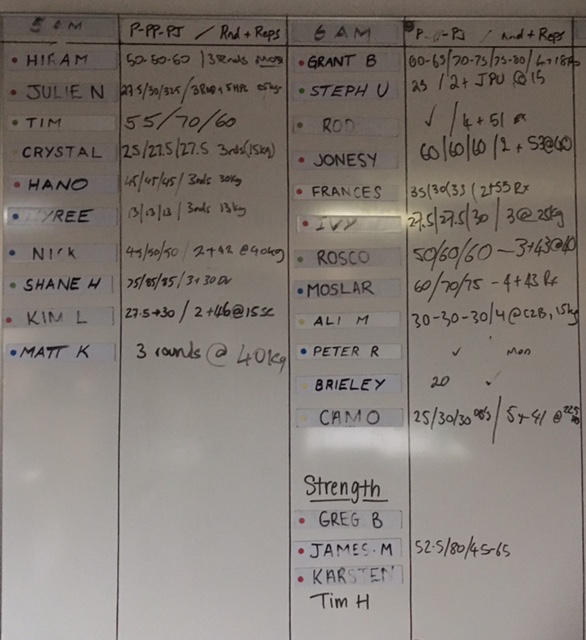 5 AM P-PP-PJ / Rnd + Reps
HIRAM 50-50-60 / 3 Rnds
JULIE N 27.5/30/32.5 /
TIM 55/70/60
CRYSTAL 25/27.5/27.5 3rnds (15kg)
HANO 45/45/45/ 3rnds 30kg
13/13/13 / 3rnds 13kg
NICK 45/50/50 / 2+42 @ 40kg
SHANE H 75/85/85/ 3+30
KIM L 27.5→30 / 2+46@15
MATT K 3 rounds @ 40kg
6 AM P- -PJ / Rnd + Reps
GRANT B 60-65/70-75/75-80/
STEPH U 25 / 2+ @ 15
ROD ✓ / 4 + 51 Rx
JONESY 60/60/60 / 2 + 53@40
FRANCES 35/30/35 / 2+55 Rx
IVY 27.5/27.5/30 / 3@25kg
ROSCO 50/60/60 - 3+43@40
MOSLAR 60/70/75 - 4+43 Rx
ALI M 30-30-30/4@C2B, 15kg
PETER R ✓ Mon
BRIELEY 20 ✓
CAMO 25/30/30 / @ 22.5
Strength
GREG B
JAMES.M 52.5/80/45-65
KARSTEN
Tim H